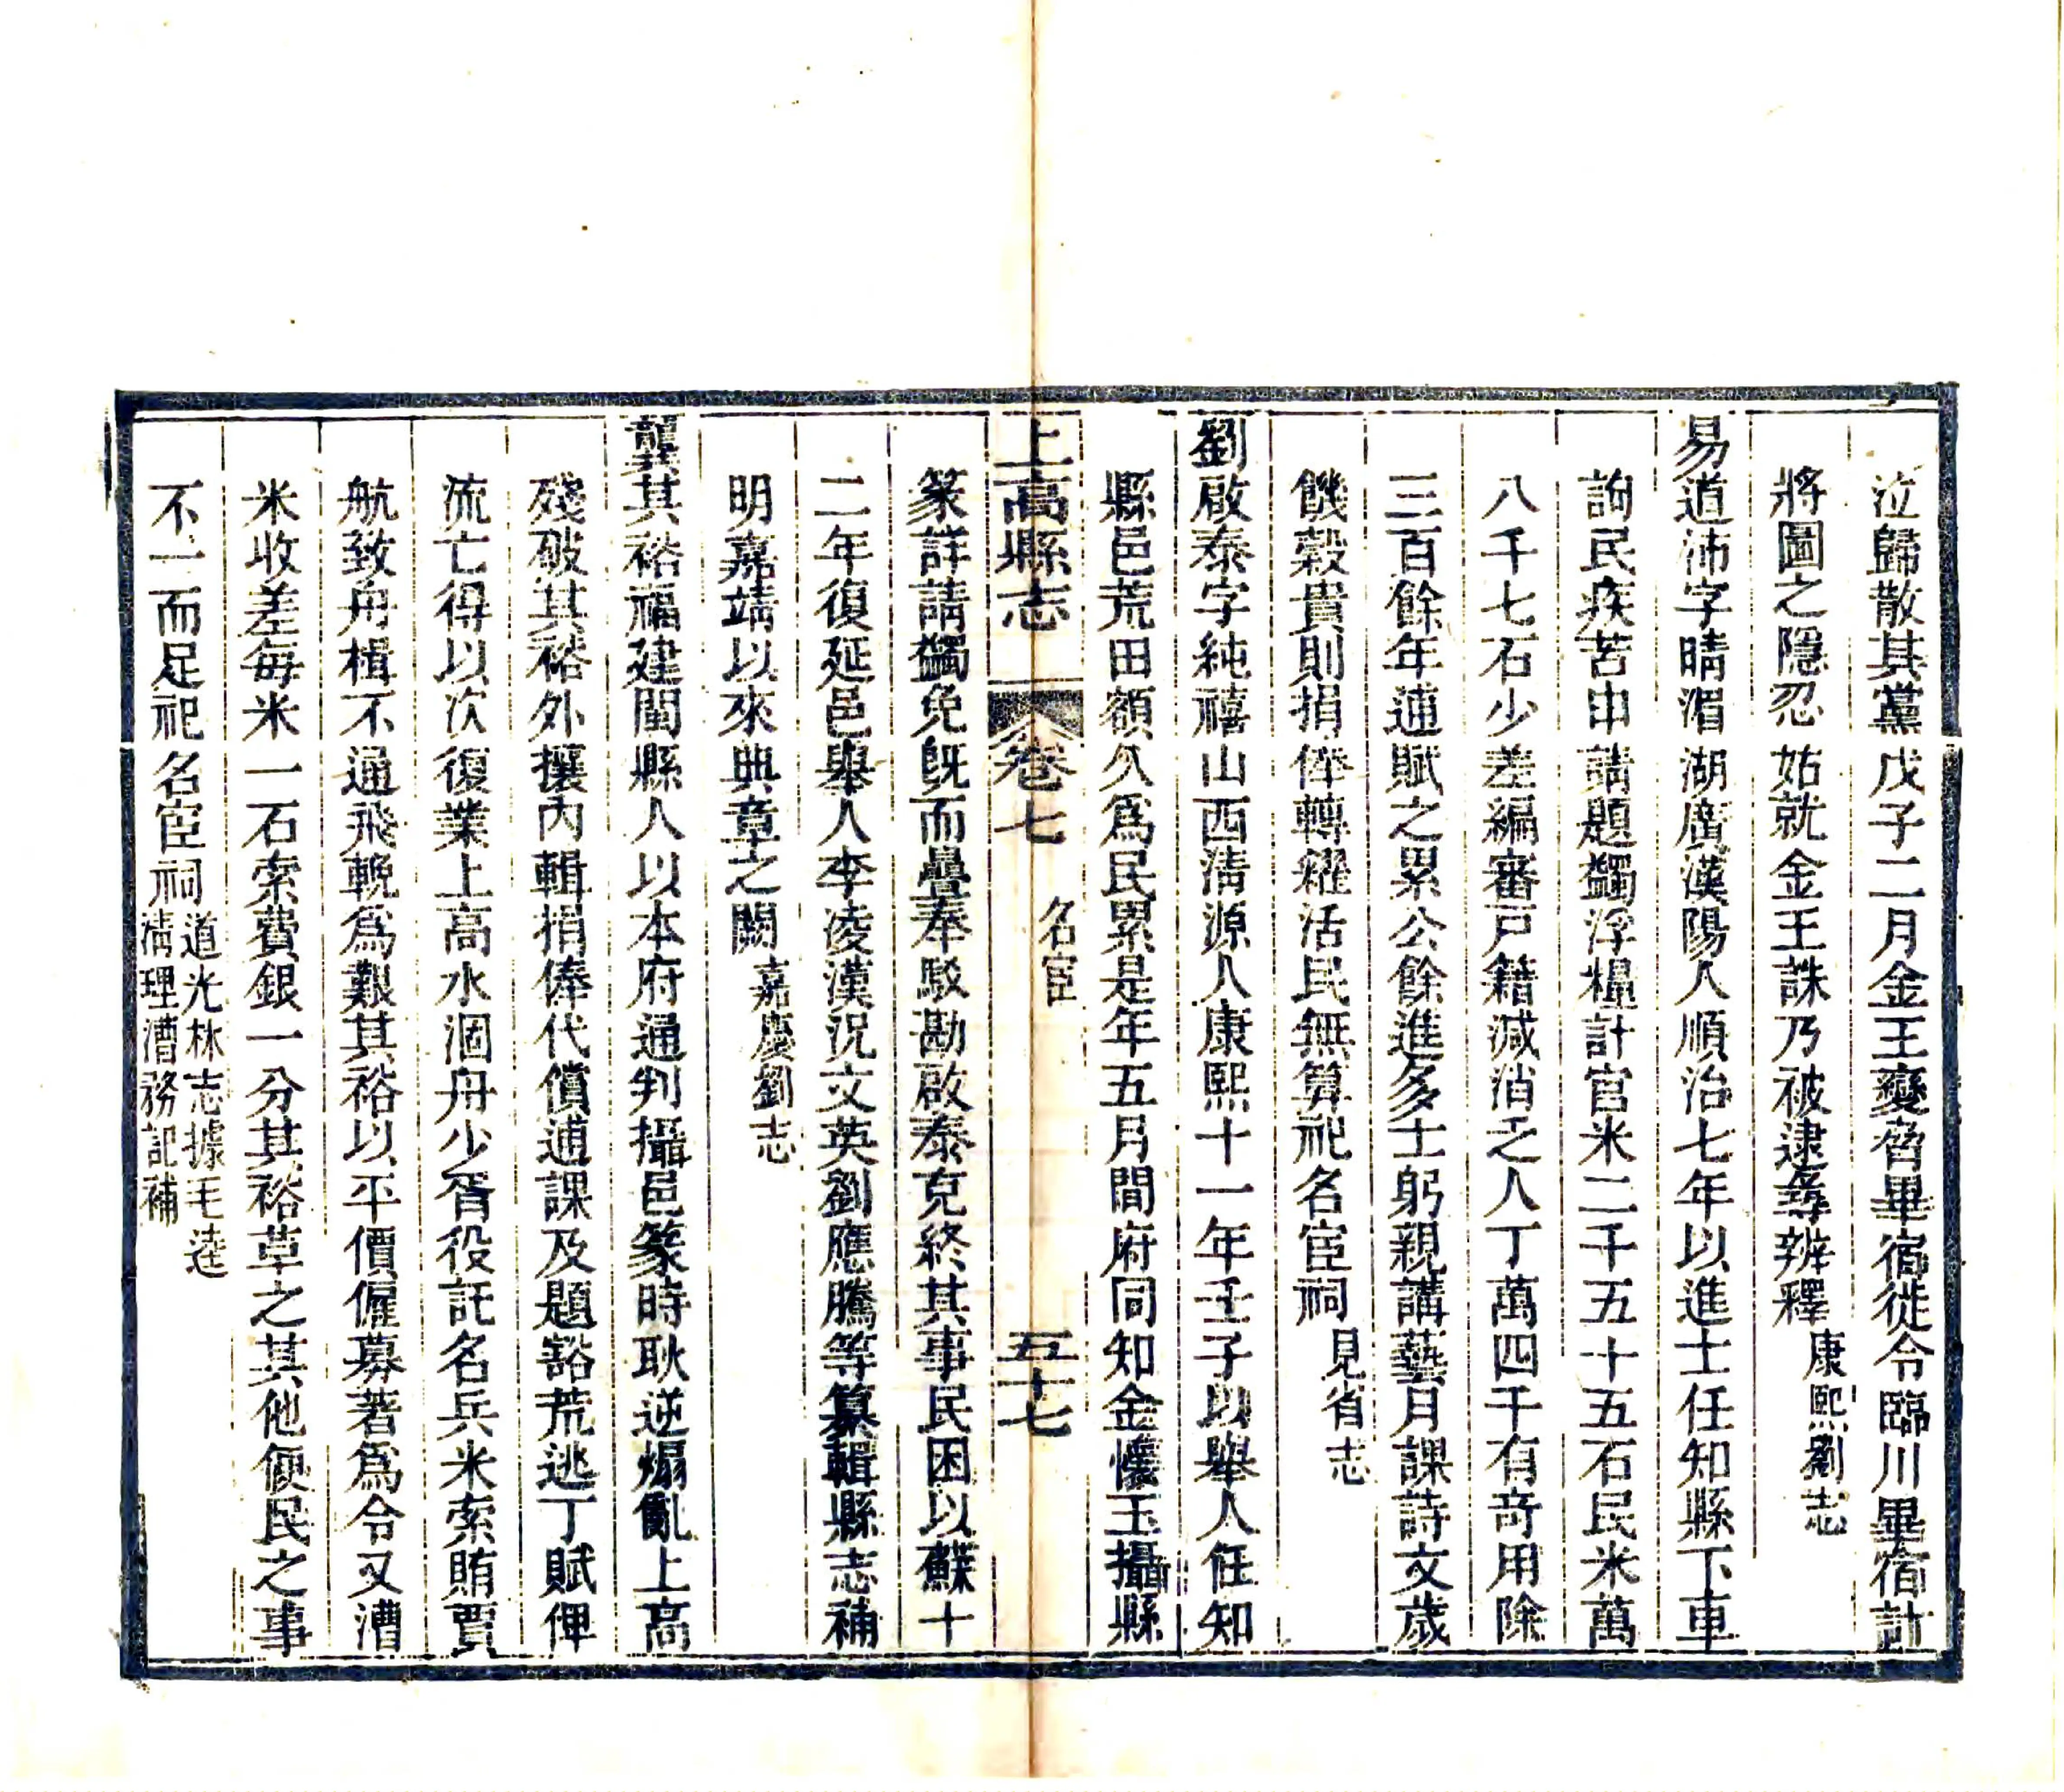 泣歸散其黨戊子二月金王變脅畢宿從令臨川畢宿計
將圖之隱忍姑就金王誅乃被逮尋辨釋康熙劉志
易道沛字晴湄湖廣漢陽人順治七年以進士任知縣下車
詢民疾苦申請題蠲浮糧計官米二千五十五石民米萬
八千七石少差編審戸籍减消乏人丁萬四千有奇用除
三百餘年逋賦之累公餘進多士躬親講藝月課詩文歲
饑穀貴則捐俸轉糴活民無算祀名宦祠見省志
劉啟泰字純禧山西淸源人康熙十一年壬子以舉人任知
縣邑荒田額久爲民累是年五月間府同知金懷玉攝縣
上高縣志 卷七 名宦 五十七
篆詳請蠲免旣而曡奉駁勘啟泰克終其事民困以蘇十
二年復延邑舉人李凌漢況文英劉應騰等纂輯縣志補
明嘉靖以來典章之闕嘉慶劉志
龔其裕福建閩縣人以本府通判攝邑篆時耿逆煽亂上高
殘破其裕外攘內輯捐俸代償逋課及題豁荒逃丁賦俾
流亡得以次復業上高水涸舟少胥役託名兵米索賄賈
航致舟楫不通飛輓爲艱其裕以平價僱募著爲令又漕
米收差每米一石索費銀一分其裕草之其他便民之事
不一而足祀名宦祠道光林志據毛逵
淸理漕務記補